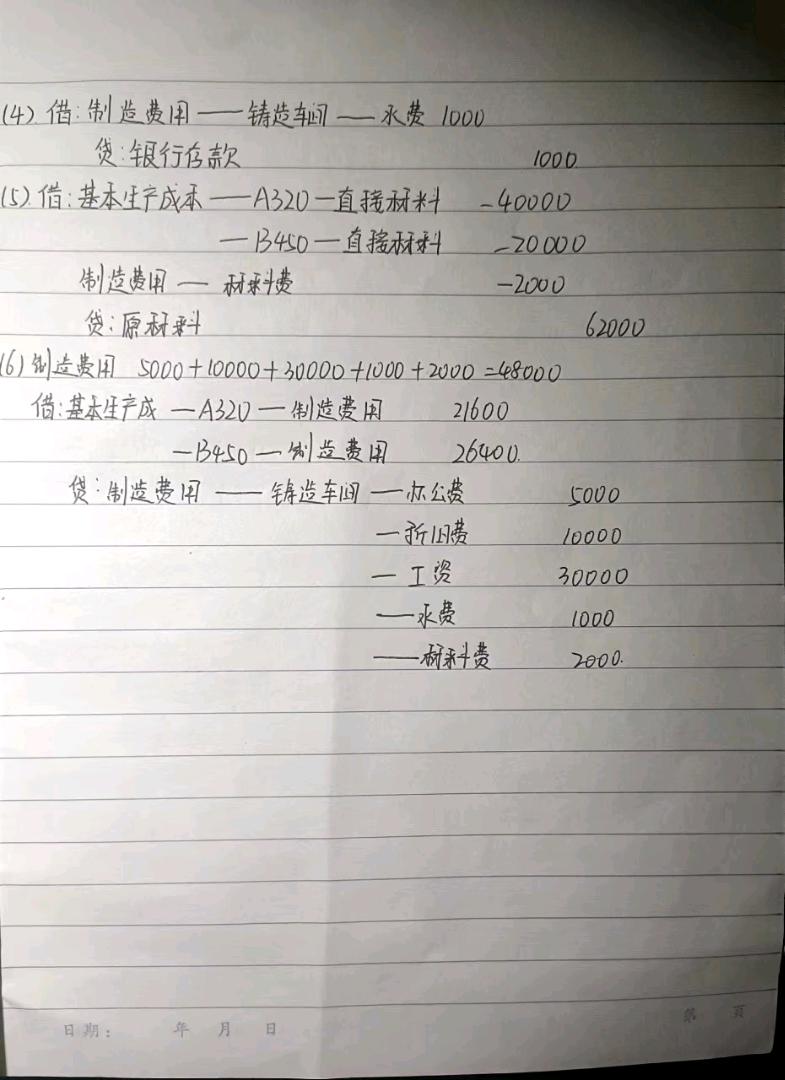 (4). 借:制造费用——铸造车间——水费 1000
贷:银行存款 1000
(5). 借:基本生产成本——A320—直接材料 -40000
—B450—直接材料 -20000
制造费用— 材料费 -2000
贷:原材料 62000
(6) 制造费用 5000+10000+30000+1000+2000=48000
借:基本生产成 —A320—制造费用 21600
—B450—制造费用 26400.
贷:制造费用——铸造车间—办公费 5000
—折旧费 10000
—工资 30000
—水费 1000
——材料费 2000.
日期: 年 月 日 第 页